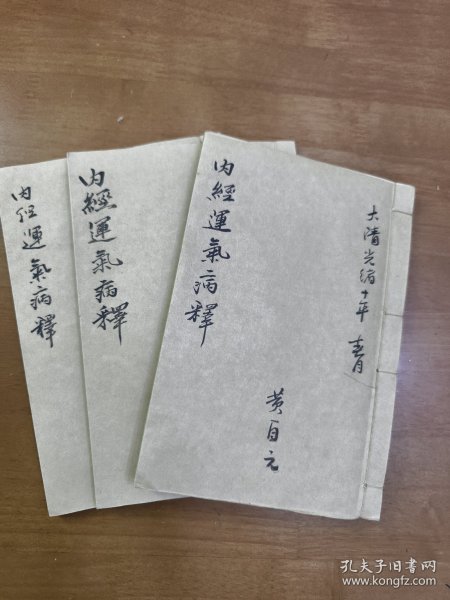 内經運氣病釋
大清光緒十年 春月
黄自元
内經運氣病釋
内经運氣病釋
孔夫子旧书网
www.kongfz.com